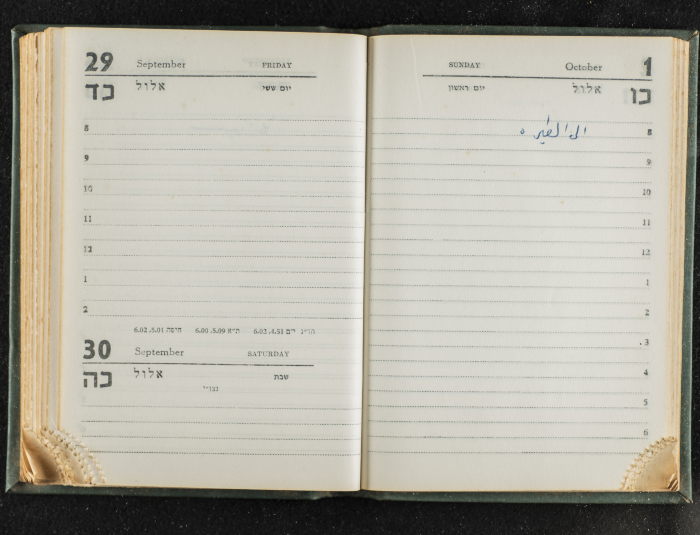 29 September FRIDAY
כד אלול יום ששי
8
9
10
11
12
1
2
הדל״נ ים 4.51, 6.02 ת״א 5.09, 6.00 חיפה 5.01, 6.02
30 September SATURDAY
כה אלול שבת
נצו״י
SUNDAY October 1
יום ראשון אלול כו
8
9
10
11
12
1
2
3
4
5
6